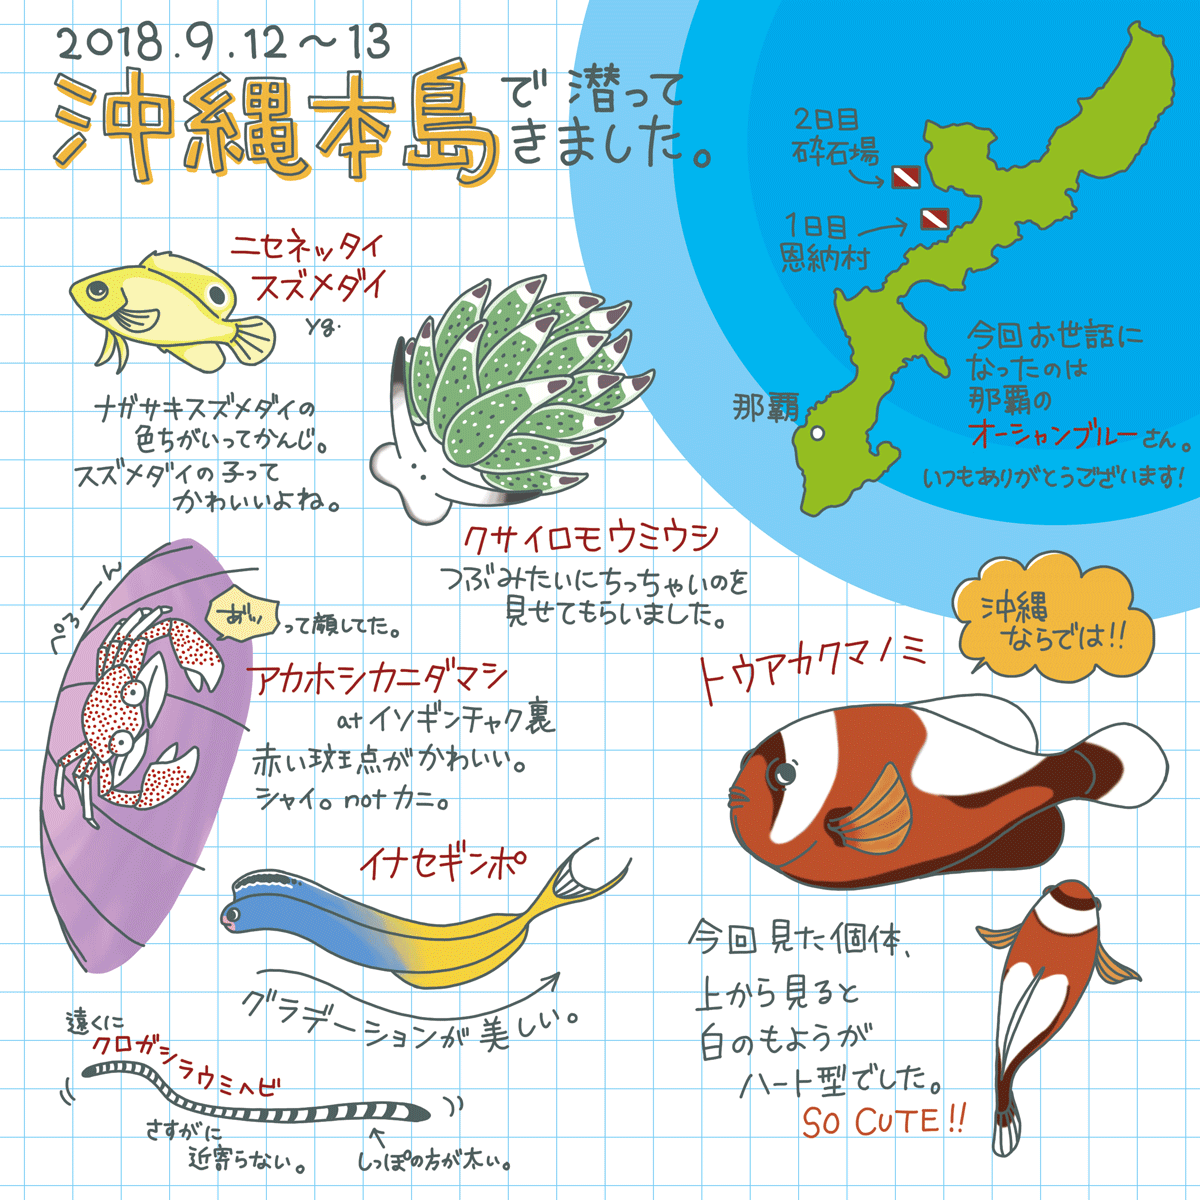 2018.9.12〜13
沖縄本島で潜って
きました。
2日目
砕石場
1日目
恩納村
那覇
今回お世話に
なったのは
那覇の
オーシャンブルーさん。
いつもありがとうございます!
ニセネッタイ
スズメダイ
yg.
ナガサキスズメダイの
色ちがいってかんじ。
スズメダイの子って
かわいいよね。
クサイロモウミウシ
つぶみたいにちっちゃいのを
見せてもらいました。
ぺろーん
あ゛ッ
って顔してた。
アカホシカニダマシ
atイソギンチャク裏
赤い斑点がかわいい。
シャイ。notカニ。
イナセギンポ
グラデーションが美しい。
遠くに
クロガシラウミヘビ
さすがに
近寄らない。
しっぽの方が太い。
沖縄
ならでは!!
トウアカクマノミ
今回見た個体、
上から見ると
白のもようが
ハート型でした。
SO CUTE!!